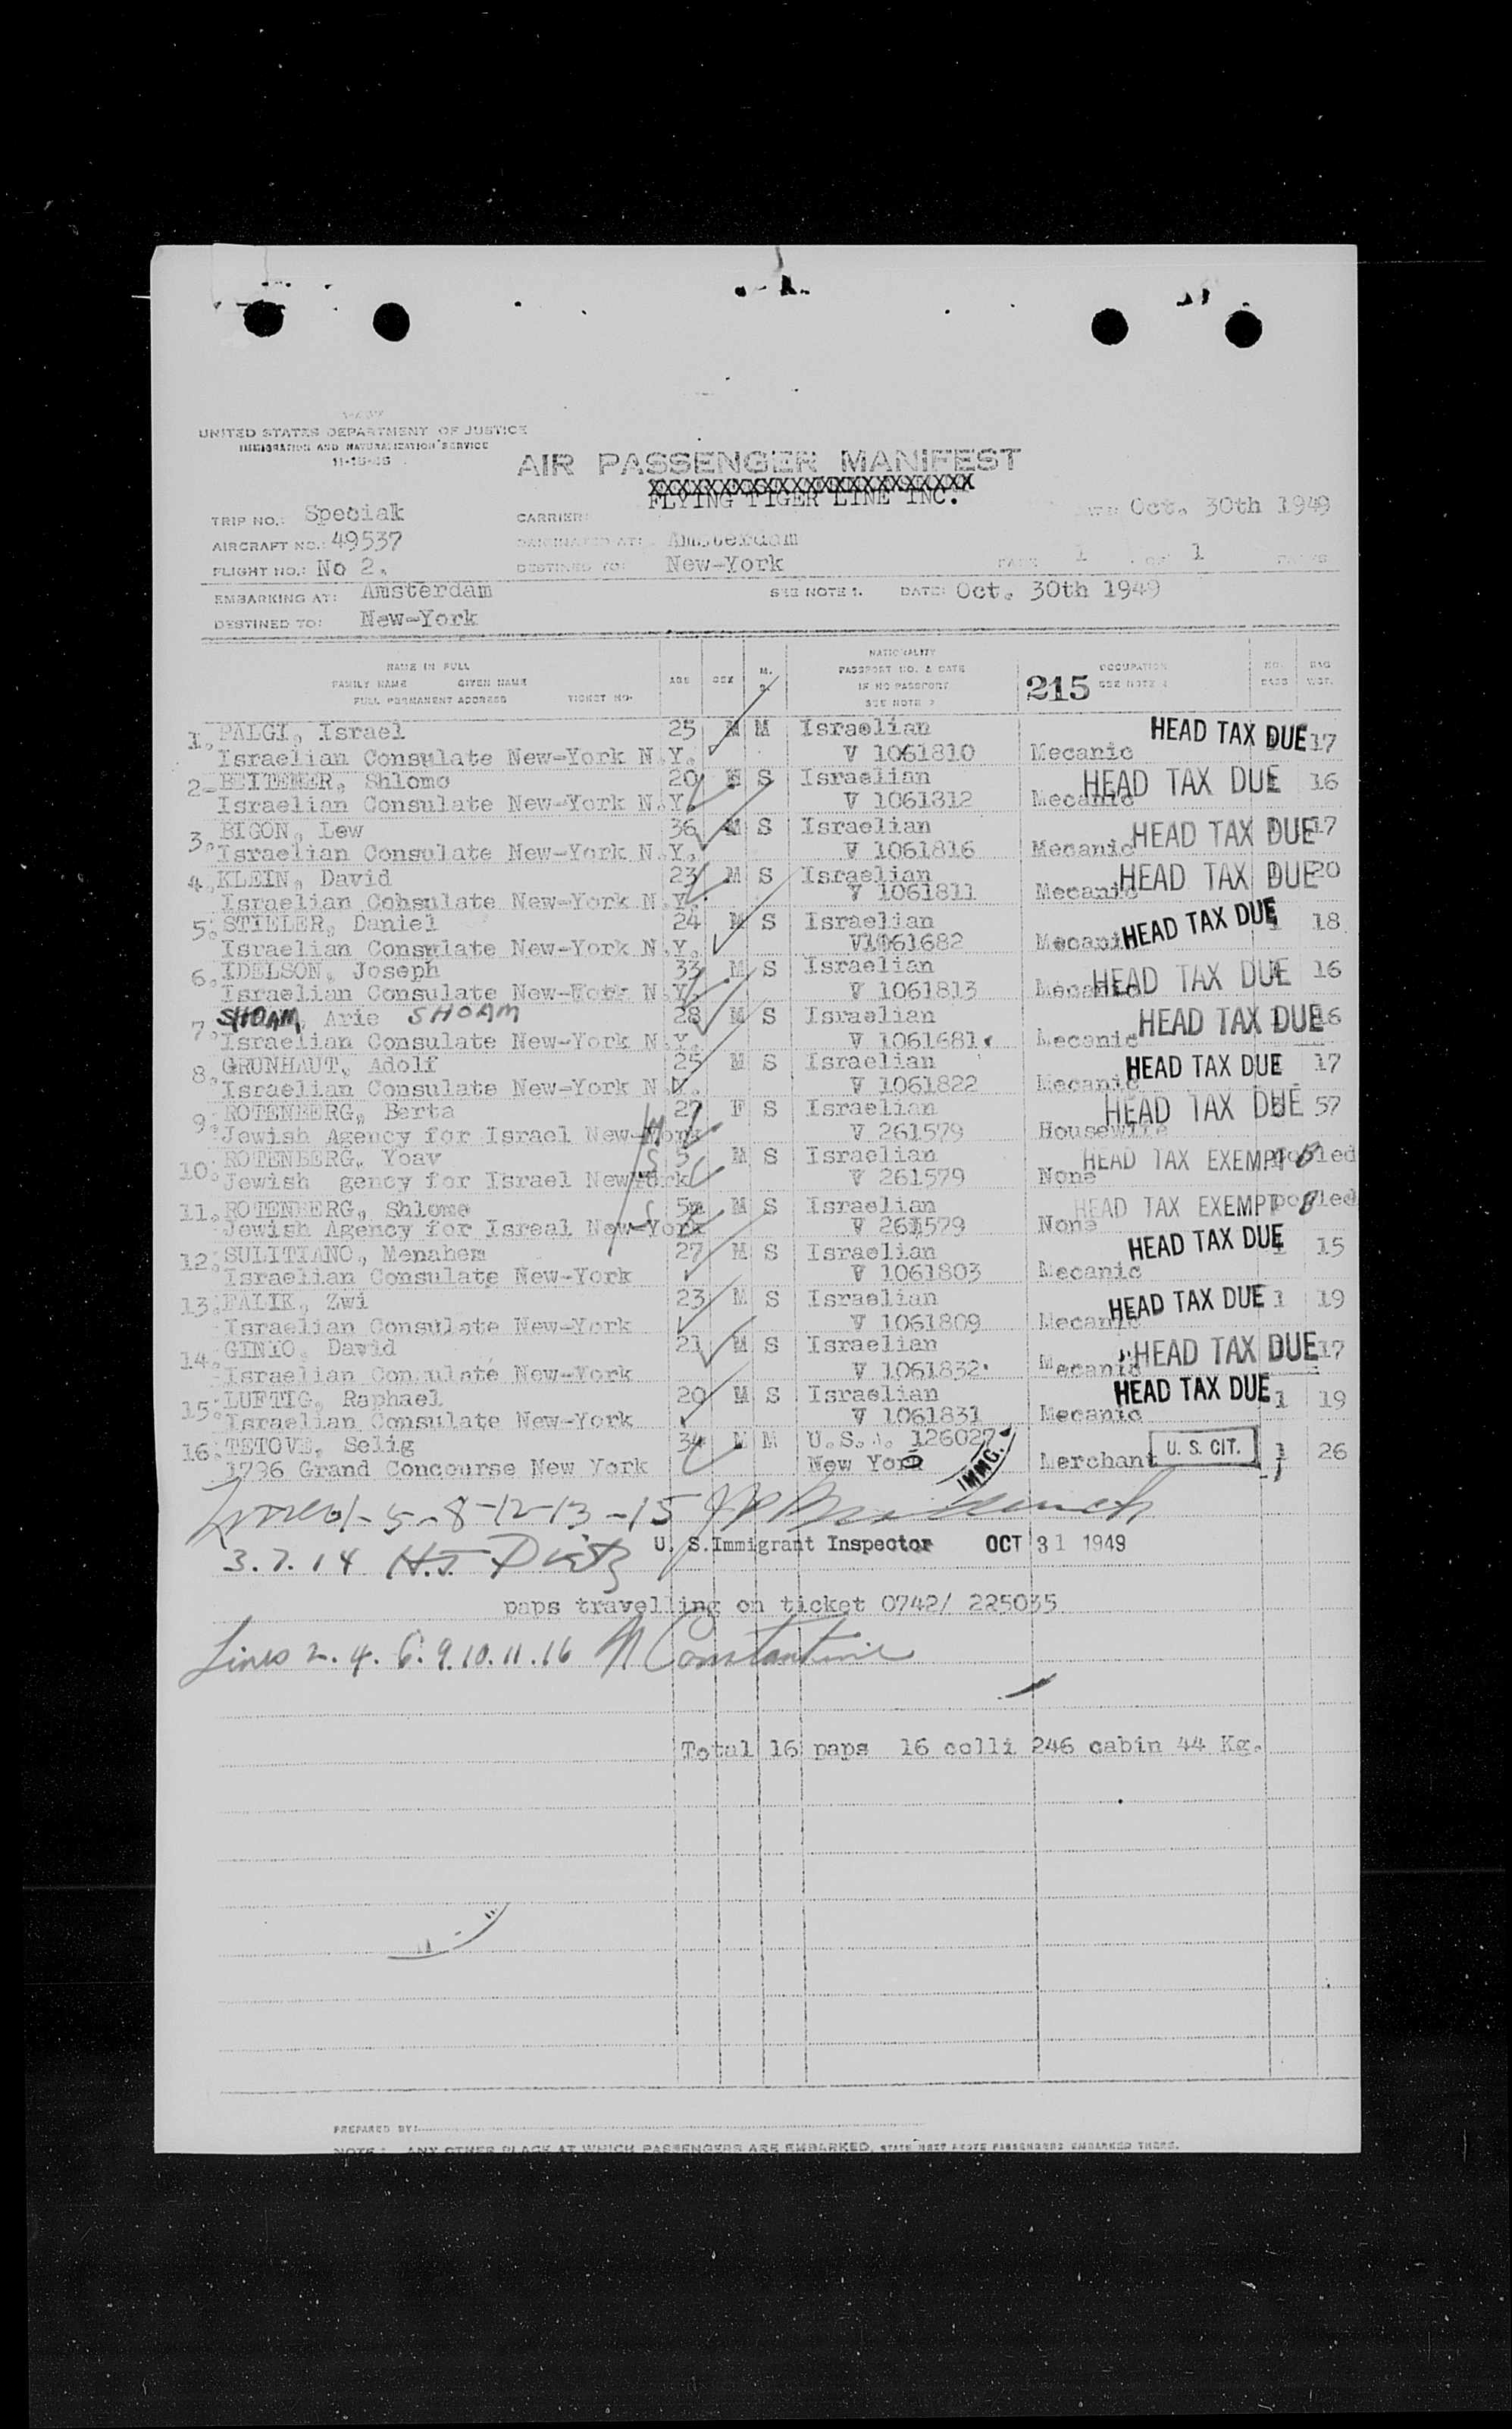 UNITED STATES DEPARTMENT OF JUSTICE
IMMIGRATION AND NATURALIZATION SERVICE
AIR PASSENGER MANIFEST
FLYING TIGER LINE INC.
TRIP NO.: Special CARRIER: DATE: Oct. 30th 1949
AIRCRAFT NO.: 49537 ORIGINATED AT: Amsterdam
FLIGHT NO.: No 2. DESTINED TO: New-York PAGE 1 OF 1 PAGES
EMBARKING AT: Amsterdam SEE NOTE 1. DATE: Oct. 30th 1949
DESTINED TO: New-York
NAME IN FULL
FAMILY NAME GIVEN NAME
FULL PERMANENT ADDRESS TICKET NO.
AGE SEX M. S.
NATIONALITY
PASSPORT NO. & DATE
IF NO PASSPORT
SEE NOTE
215 OCCUPATION
SEE NOTE
NO. BAGS BAG WGT.
1. PALGI, Israel 25 M M Israelian HEAD TAX DUE 17
Israelian Consulate New-York N.Y. V 1061810 Mecanic
2- BEITEMER, Shlomo 20 M S Israelian HEAD TAX DUE 16
Israelian Consulate New-York N.Y. V 1061812 Mecanic
3. BIGON, Lew 36 M S Israelian HEAD TAX DUE 17
Israelian Consulate New-York N.Y. V 1061816 Mecanic
4. KLEIN, David 23 M S Israelian HEAD TAX DUE 20
Israelian Cohsulate New-York N.Y. V 1061811 Mecanic
5. STIELER, Daniel 24 M S Israelian HEAD TAX DUE 1 18
Israelian Consulate New-York N.Y. V1061682 Mecanic
6. IDELSON, Joseph 33 M S Israelian HEAD TAX DUE 16
Israelian Consulate New-York N.Y. V 1061813 Mecanic
7. SHOAM, Arie SHOAM 28 M S Israelian HEAD TAX DUE 16
Israelian Consulate New-York N.Y. V 1061681 Mecanic
8. GRUNHAUT, Adolf 25 M S Israelian HEAD TAX DUE 17
Israelian Consulate New-York N. V 1061822 Mecanic
9. ROTENBERG, Berta 27 F S Israelian HEAD TAX DUE 57
Jewish Agency for Israel New-York M V 261579 Housewife
10. ROTENBERG, Yoav S 5 M S Israelian HEAD TAX EXEMPT pooled
Jewish gency for Israel NewYork V 261579 None
11. ROTENBERG, Shlomo S 5m M S Israelian HEAD TAX EXEMPT pooled
Jewish Agency for Isreal New-York V 261579 None
12. SULITIANO, Menahem 27 M S Israelian HEAD TAX DUE 1 15
Israelian Consulate New-York V 1061803 Mecanic
13. FALIK, Zwi 23 M S Israelian HEAD TAX DUE 1 19
Israelian Consulate New-York V 1061809 Mecanic
14. GINIO, David 21 M S Israelian HEAD TAX DUE 17
Israelian Consulate New-York V 1061832 Mecanic
15. LUFTIG, Raphael 20 M S Israelian HEAD TAX DUE 1 19
Israelian Consulate New-York V 1061831 Mecanic
16. TETOVE, Selig 34 M M U.S.A. 126027 U. S. CIT. 1 26
1796 Grand Concourse New York New York IMMG. Merchant
1-5-8-12-13-15
U. S. Immigrant Inspector OCT 31 1949
3.7.14 H.J. Dietz
paps travelling on ticket 0742/ 225035
Lines 2. 4. 6. 9. 10. 11. 16 N Constantine
Total 16 paps 16 colli 246 cabin 44 Kg.
PREPARED BY:
NOTE: ANY OTHER PLACE AT WHICH PASSENGERS ARE EMBARKED, STATE NEXT ABOVE PASSENGERS EMBARKED THERE.